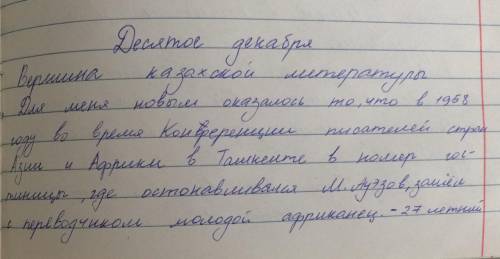 Десятое декабря
Вершина казахской литературы
Для меня новым оказалось то, что в 1958
году во время Конференции писателей стран
Азии и Африки в Ташкенте в номер гос-
тиницы, где останавливался М. Ауэзов, зашёл
с переводчиком молодой африканец. - 27 летний